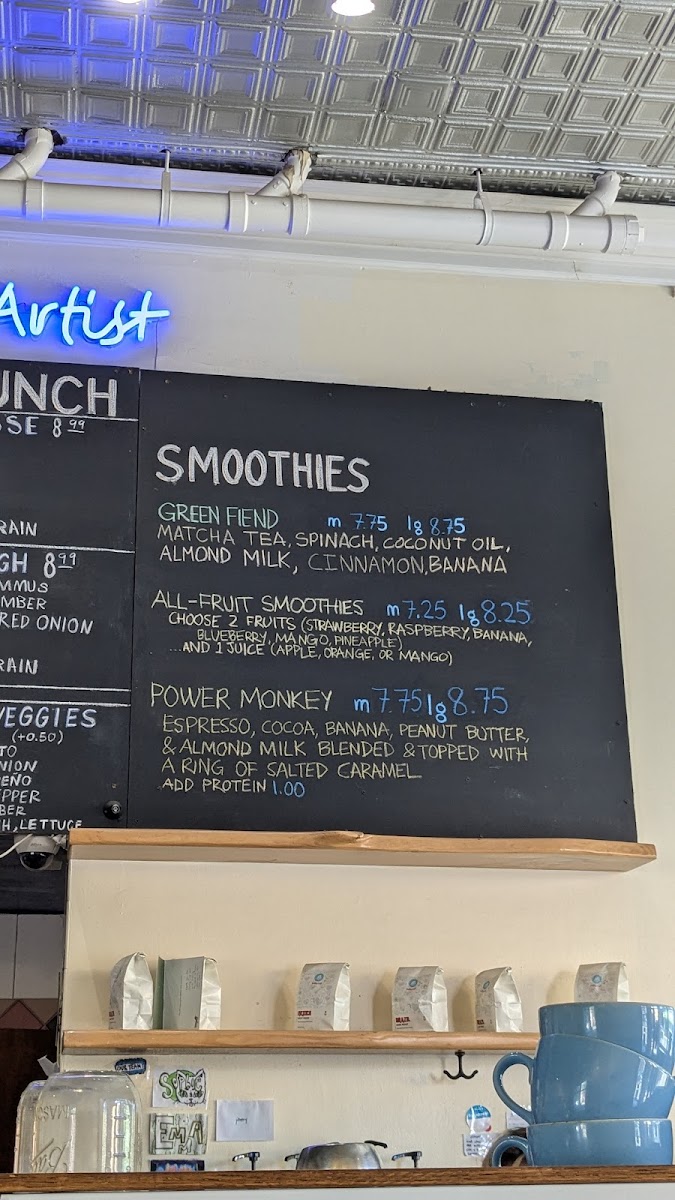 Artist
UNCH
SE 8.99
RAIN
GH 8.99
MMUS
MBER
RED ONION
RAIN
VEGGIES
(+0.50)
TO
NION
EÑO
PPER
BER
H, LETTUCE
SMOOTHIES
GREEN FIEND m 7.75 lg 8.75
MATCHA TEA, SPINACH, COCONUT OIL,
ALMOND MILK, CINNAMON, BANANA
ALL-FRUIT SMOOTHIES m 7.25 lg 8.25
CHOOSE 2 FRUITS (STRAWBERRY, RASPBERRY, BANANA,
BLUEBERRY, MANGO, PINEAPPLE)
...AND 1 JUICE (APPLE, ORANGE, OR MANGO)
POWER MONKEY m 7.75 lg 8.75
ESPRESSO, COCOA, BANANA, PEANUT BUTTER,
& ALMOND MILK BLENDED & TOPPED WITH
A RING OF SALTED CARAMEL
ADD PROTEIN 1.00
BRAZIL
EMA
MAS